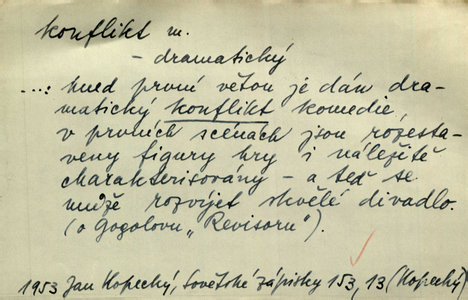 konflikt m.
– dramatický
...: hned první větou je dán dra-
matický konflikt komedie,
v prvních scénách jsou rozesta-
veny figury hry i náležitě
charakterisovány – a teď se
může rozvíjet skvělé divadlo.
(o Gogolovu „Revisoru“).
1953 Jan Kopecký, Sovětské zápisky 153, 13 (Kopecký)